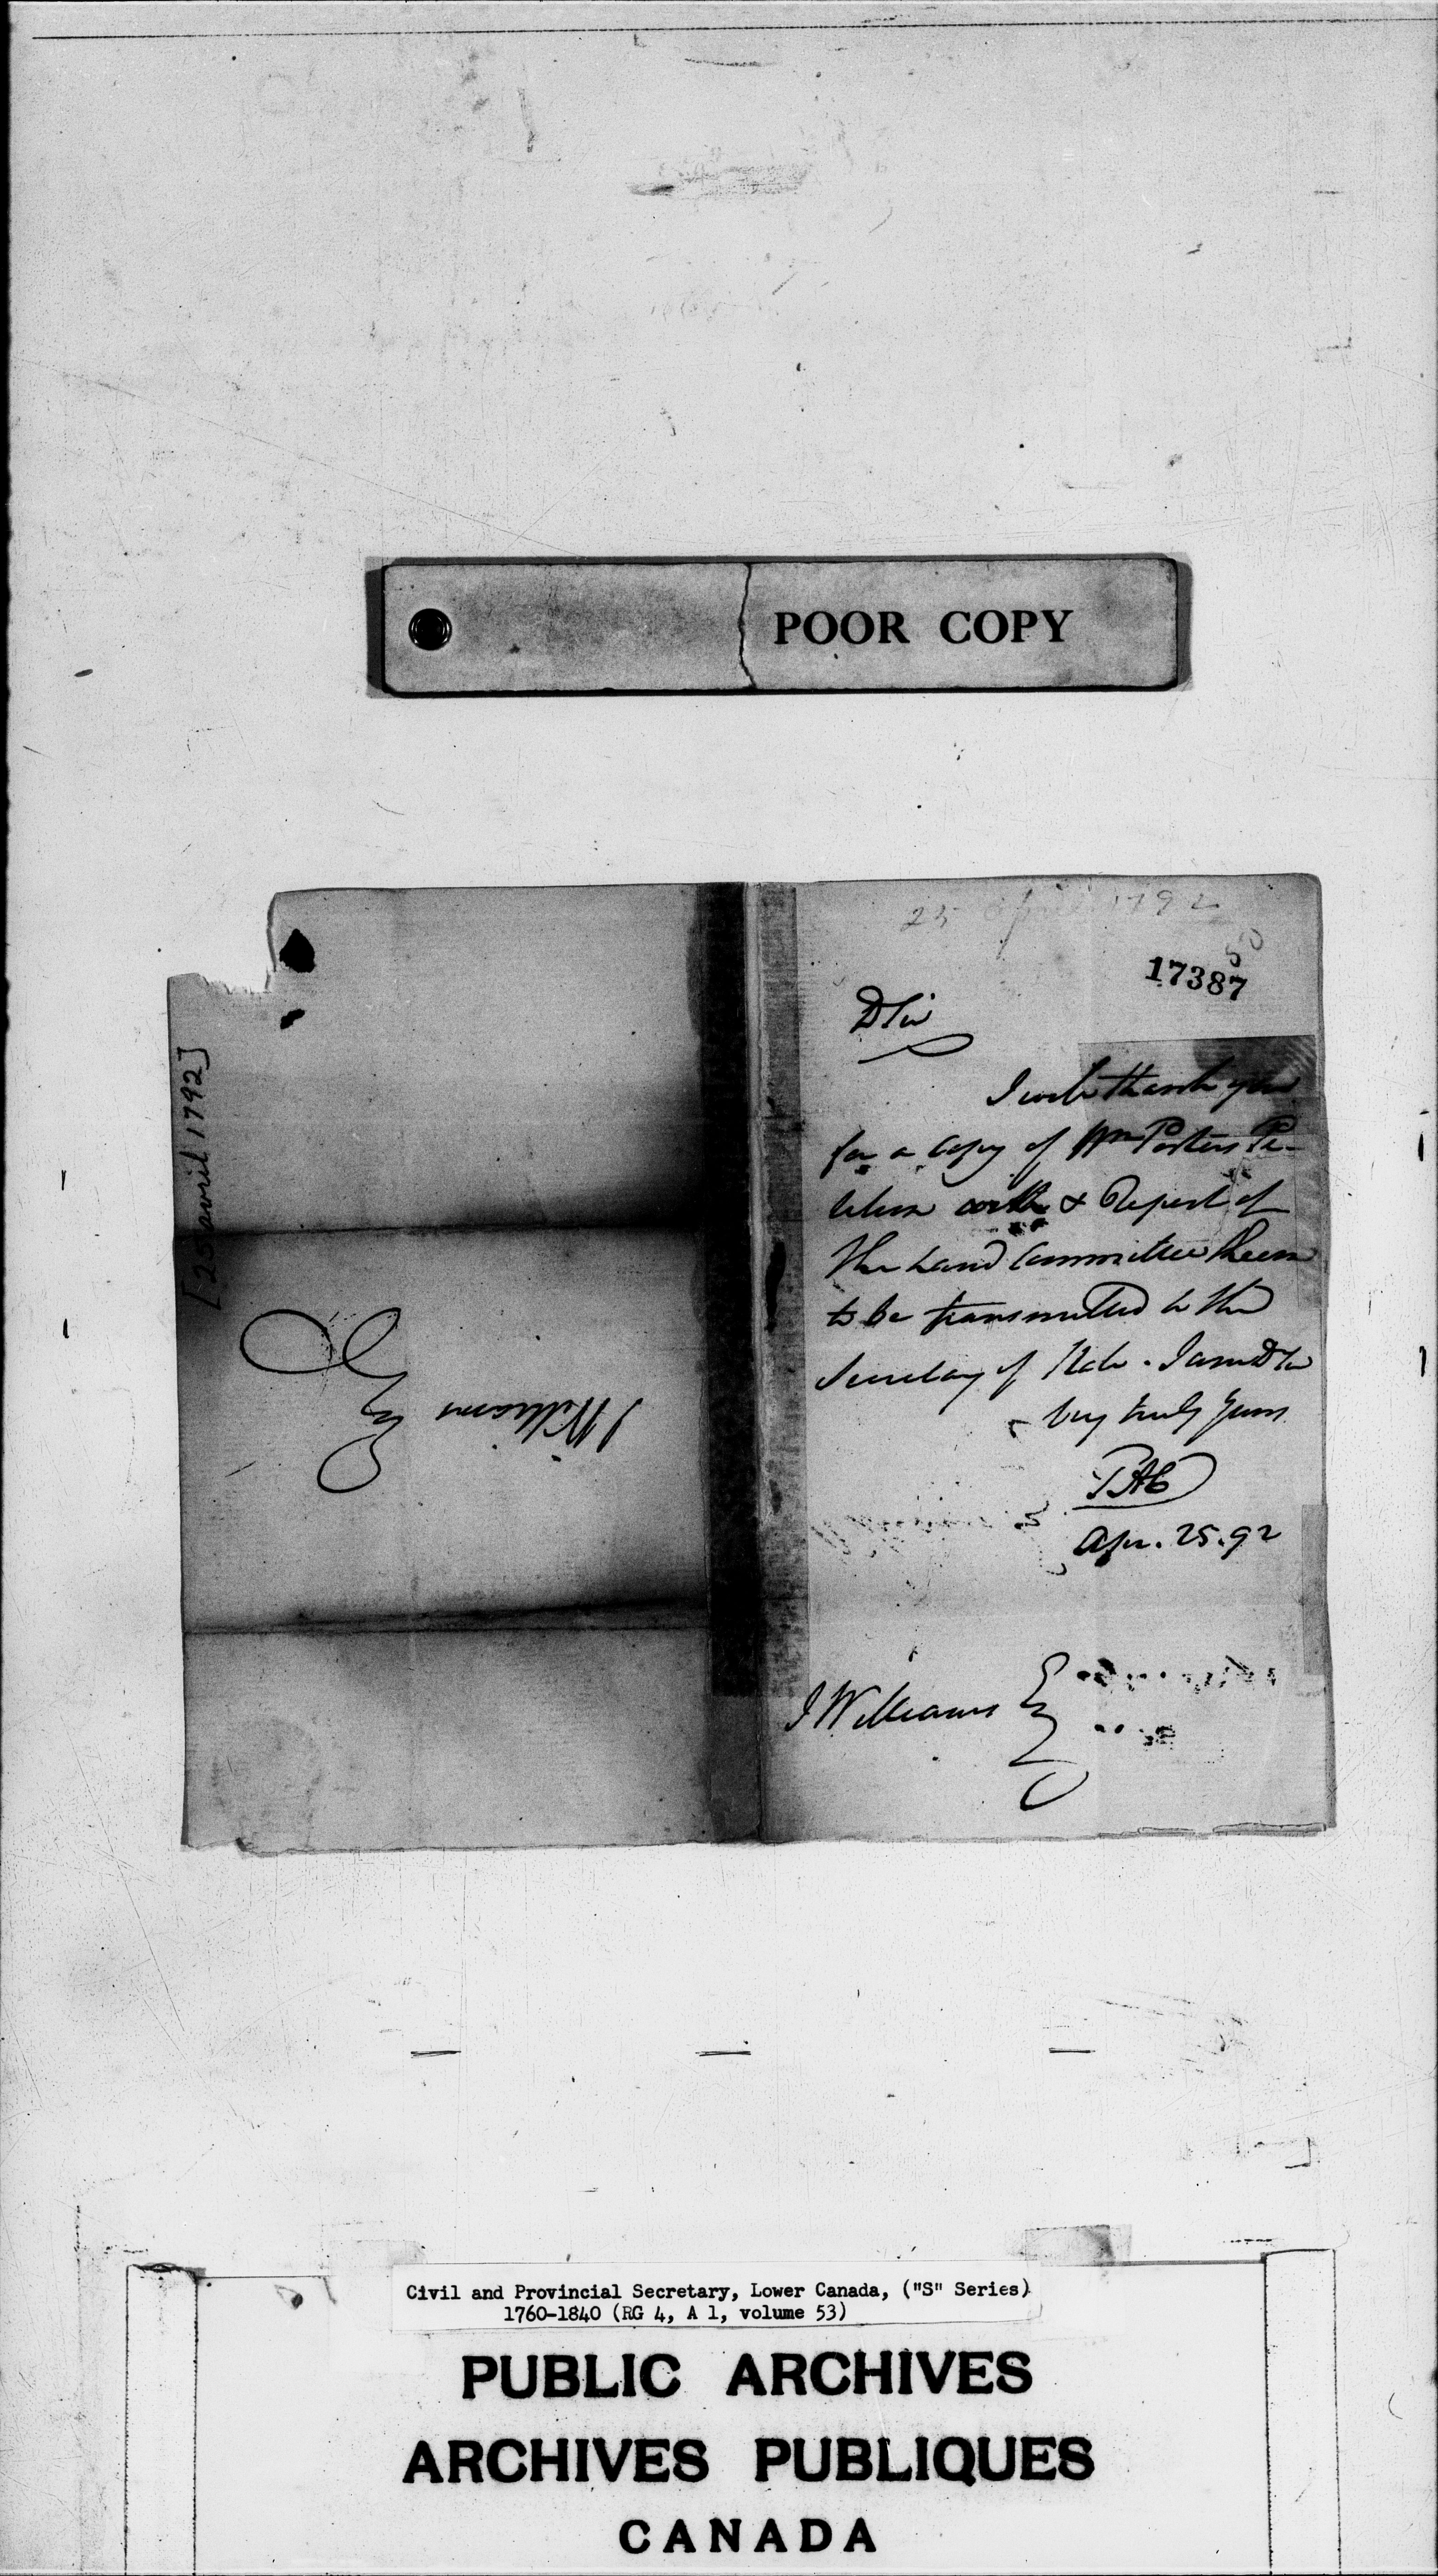 POOR COPY
[25 avril 1792]
J Williams
Esq
25 April 1792
50
17387
D Sir
I will thank you
for a Copy of Wm Porters Pe-
tition with & Report of
the Land Committee thereon
to be transmitted to the
Secretary of State. I am D Sir
very truly yours
TAC
Apr. 25. 92
J Williams Esq
Civil and Provincial Secretary, Lower Canada, ("S" Series)
1760-1840 (RG 4, A 1, volume 53)
PUBLIC ARCHIVES
ARCHIVES PUBLIQUES
CANADA